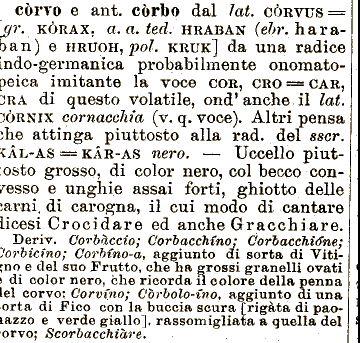 còrvo e ant. còrbo dal lat. CÒRVUS =
gr. KÒRAX, a. a. ted. HRABAN (ebr. hara-
ban) e HRUOH, pol. KRUK] da una radice
indo-germanica probabilmente onomato-
peica imitante la voce COR, CRO = CAR,
CRA di questo volatile, ond' anche il lat.
CÒRNIX cornacchia (v. q. voce). Altri pensa
che attinga piuttosto alla rad. del sscr.
KÂL-AS = KÂR-AS nero. — Uccello piut-
tosto grosso, di color nero, col becco con-
vesso e unghie assai forti, ghiotto delle
carni di carogna, il cui modo di cantare
dicesi Crocidare ed anche Gracchiare.
Deriv. Corbàccio; Corbacchíno; Corbacchióne;
Corbicíno; Corbíno-a, aggiunto di sorta di Viti-
gno e del suo Frutto, che ha grossi granelli ovati
e di color nero, che ricorda il colore della penna
del corvo; Corvíno; Còrbolo-íno, aggiunto di una
sorta di Fico con la buccia scura [rigàta di pao-
nazzo e verde giallo], rassomigliata a quella del
corvo; Scorbacchiàre.